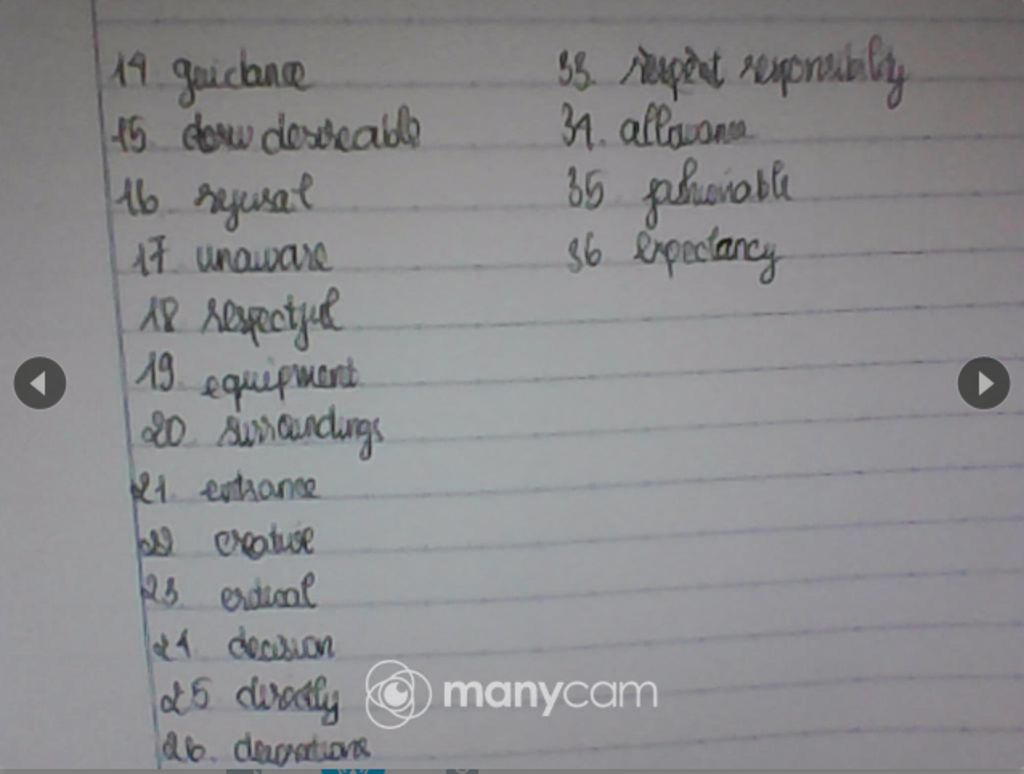 14 guidance
15. desireable
16 refusal
17 unaware
18 respectful
19 equipment
20 surroundings
21 entrance
22 creative
23 critical
24 decision
25 directly
26. decorations
33. respect responsibility
34. allowance
35 fashionable
36 expectancy
manycam